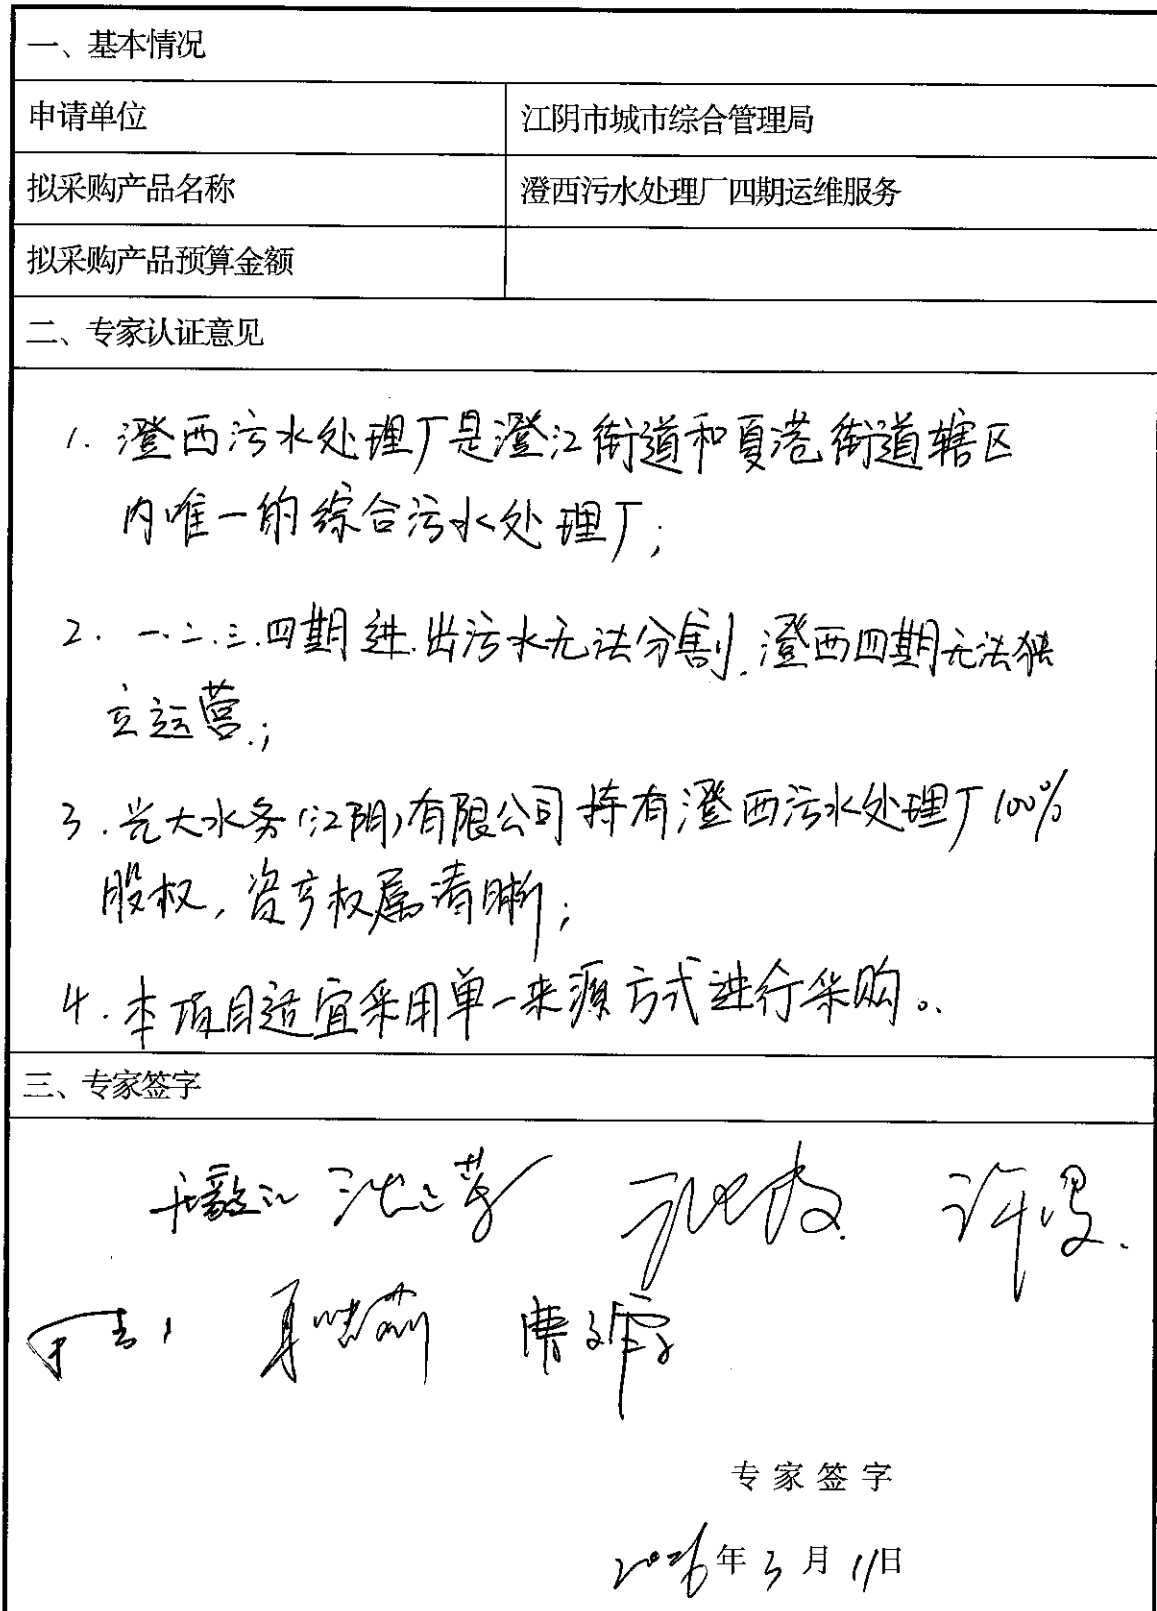 一、基本情况
申请单位 江阴市城市综合管理局
拟采购产品名称 澄西污水处理厂四期运维服务
拟采购产品预算金额
二、专家认证意见
1. 澄西污水处理厂是澄江街道和夏港街道辖区
内唯一的综合污水处理厂；
2. 一.二.三.四期进.出污水无法分割.澄西四期无法独
立运营；
3. 光大水务(江阴)有限公司持有澄西污水处理厂100%
股权，资产权属清晰；
4. 本项目适宜采用单一来源方式进行采购。
三、专家签字
专家签字
2026年3月11日